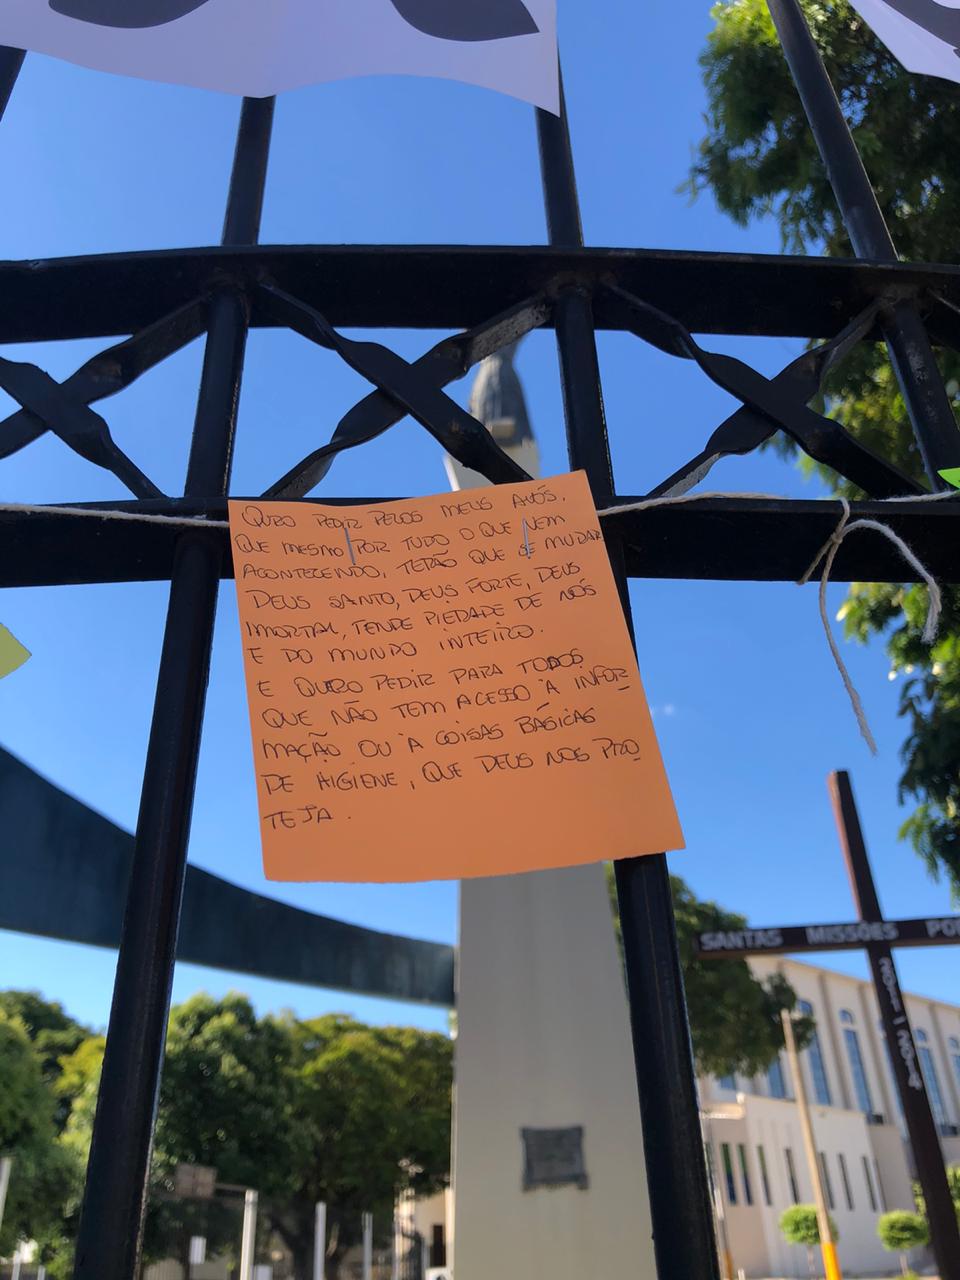 QUERO PEDIR PELOS MEUS AVÓS,
QUE MESMO POR TUDO O QUE VEM
ACONTECENDO, TERÃO QUE SE MUDAR
DEUS SANTO, DEUS FORTE, DEUS
IMORTAL, TENDE PIEDADE DE NÓS
E DO MUNDO INTEIRO.
E QUERO PEDIR PARA TODOS
QUE NÃO TEM ACESSO À INFOR
MAÇÃO OU À COISAS BÁSICAS
DE HIGIENE, QUE DEUS NOS PRO
TEJA.
SANTAS MISSÕES POP